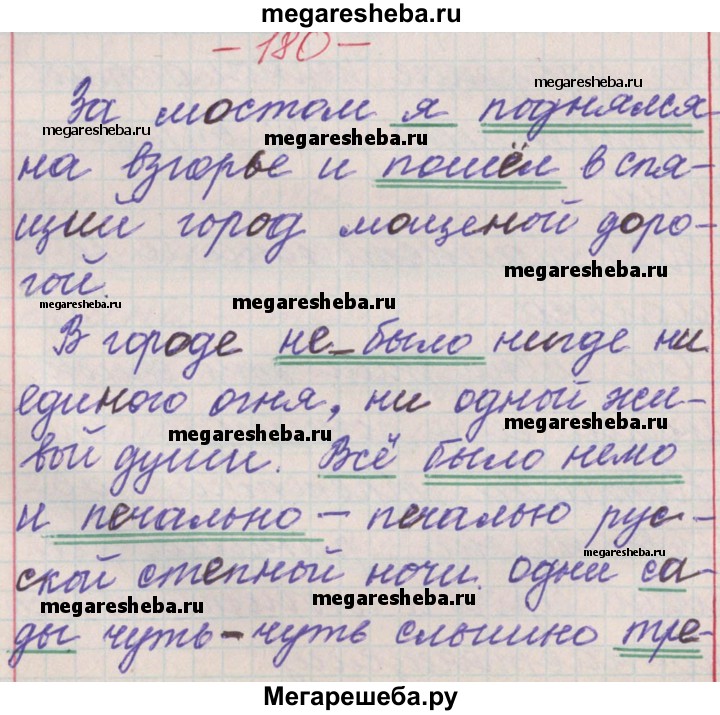 megaresheba.ru
- 180 -
megaresheba.ru
За мостом я поднялся
megaresheba.ru
megaresheba.ru
на взгорье и пошёл в спя-
щий город мощеной доро-
megaresheba.ru
гой.
megaresheba.ru
megaresheba.ru
В городе не было нигде ни
единого огня, ни одной жи-
megaresheba.ru
megaresheba.ru
вой души. Всё было немо
и печально – печалью рус-
megaresheba.ru
ской степной ночи. одни са-
megaresheba.ru
megaresheba.ru
ды чуть-чуть слышно тре-
Мегарешеба.ру